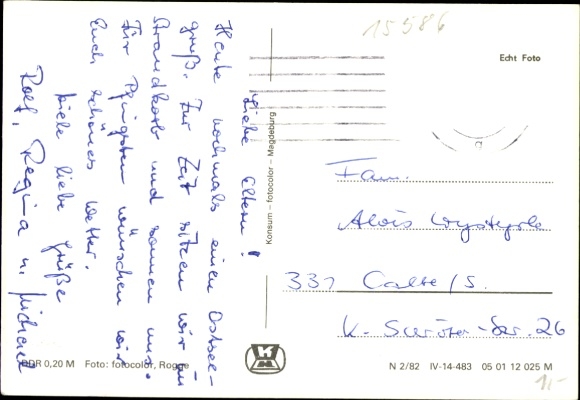 15586
Echt Foto
Liebe Eltern!
Heute nochmals einen Ostsee-
gruß. Zur Zeit sitzen wir im
Strandkorb und sonnen uns.
Für Pfingsten wünschen wir
Euch schönes Wetter.
Viele liebe Grüße
Rolf, Regina u. Michael
Konsum – fotocolor – Magdeburg
Fam.
Alois
331 Calbe/S.
K.- Schröter-Str. 26
DDR 0,20 M Foto: fotocolor, Rogge
N 2/82 IV-14-483 05 01 12 025 M
1,-